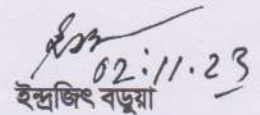 02.11.23
ইন্দ্রজিৎ বড়ুয়া